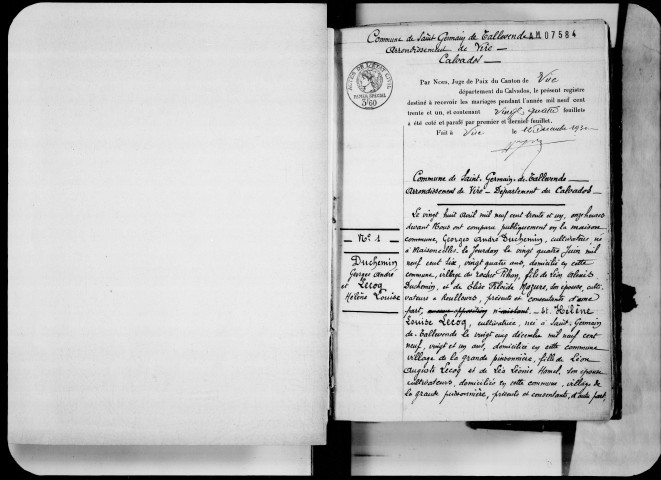 Commune de Saint Germain de Tallevende
AM 07584
Arrondissement de Vire
Calvados
ACTES DE L'ETAT CIVIL
PAPIER SPECIAL
3f60
Par Nous, Juge de Paix du Canton de Vire
département du Calvados, le présent registre
destiné à recevoir les mariages pendant l'année mil neuf cent
trente et un, et contenant vingt quatre feuillets
a été coté et parafé par premier et dernier feuillet.
Fait à Vire le 16 Décembre 1930
Commune de Saint-Germain-de-Tallevende
Arrondissement de Vire - Département du Calvados
N° 1
Duchemin
Georges André
et Lecoq
Hélène Louise
Le vingt huit avril mil neuf cent trente et un, onze heures
devant Nous ont comparu publiquement en la maison
commune, Georges André Duchemin, cultivateur, né
à Maisoncelles la Jourdan le vingt quatre Juin mil
neuf cent six, vingt quatre ans, domicilié en cette
commune, village du rocher Pihan, fils de Léon Alexis
Duchemin, et de Elise Mazure, son épouse, culti-
vateurs à Roullours, présents et consentants d'une
part, aucune opposition n'existant. - et Hélène
Louise Lecoq, cultivatrice, née à Saint-Germain
de Tallevende le vingt cinq décembre mil neuf cent
neuf, vingt et un ans, domiciliée en cette commune
village de la grande pinsonnière, fille de Léon
Auguste Lecoq et de Léa Léonie Hamel, son épouse
cultivateurs, domiciliés en cette commune, village de
la grande pinsonnière, présents et consentants, d'autre part,